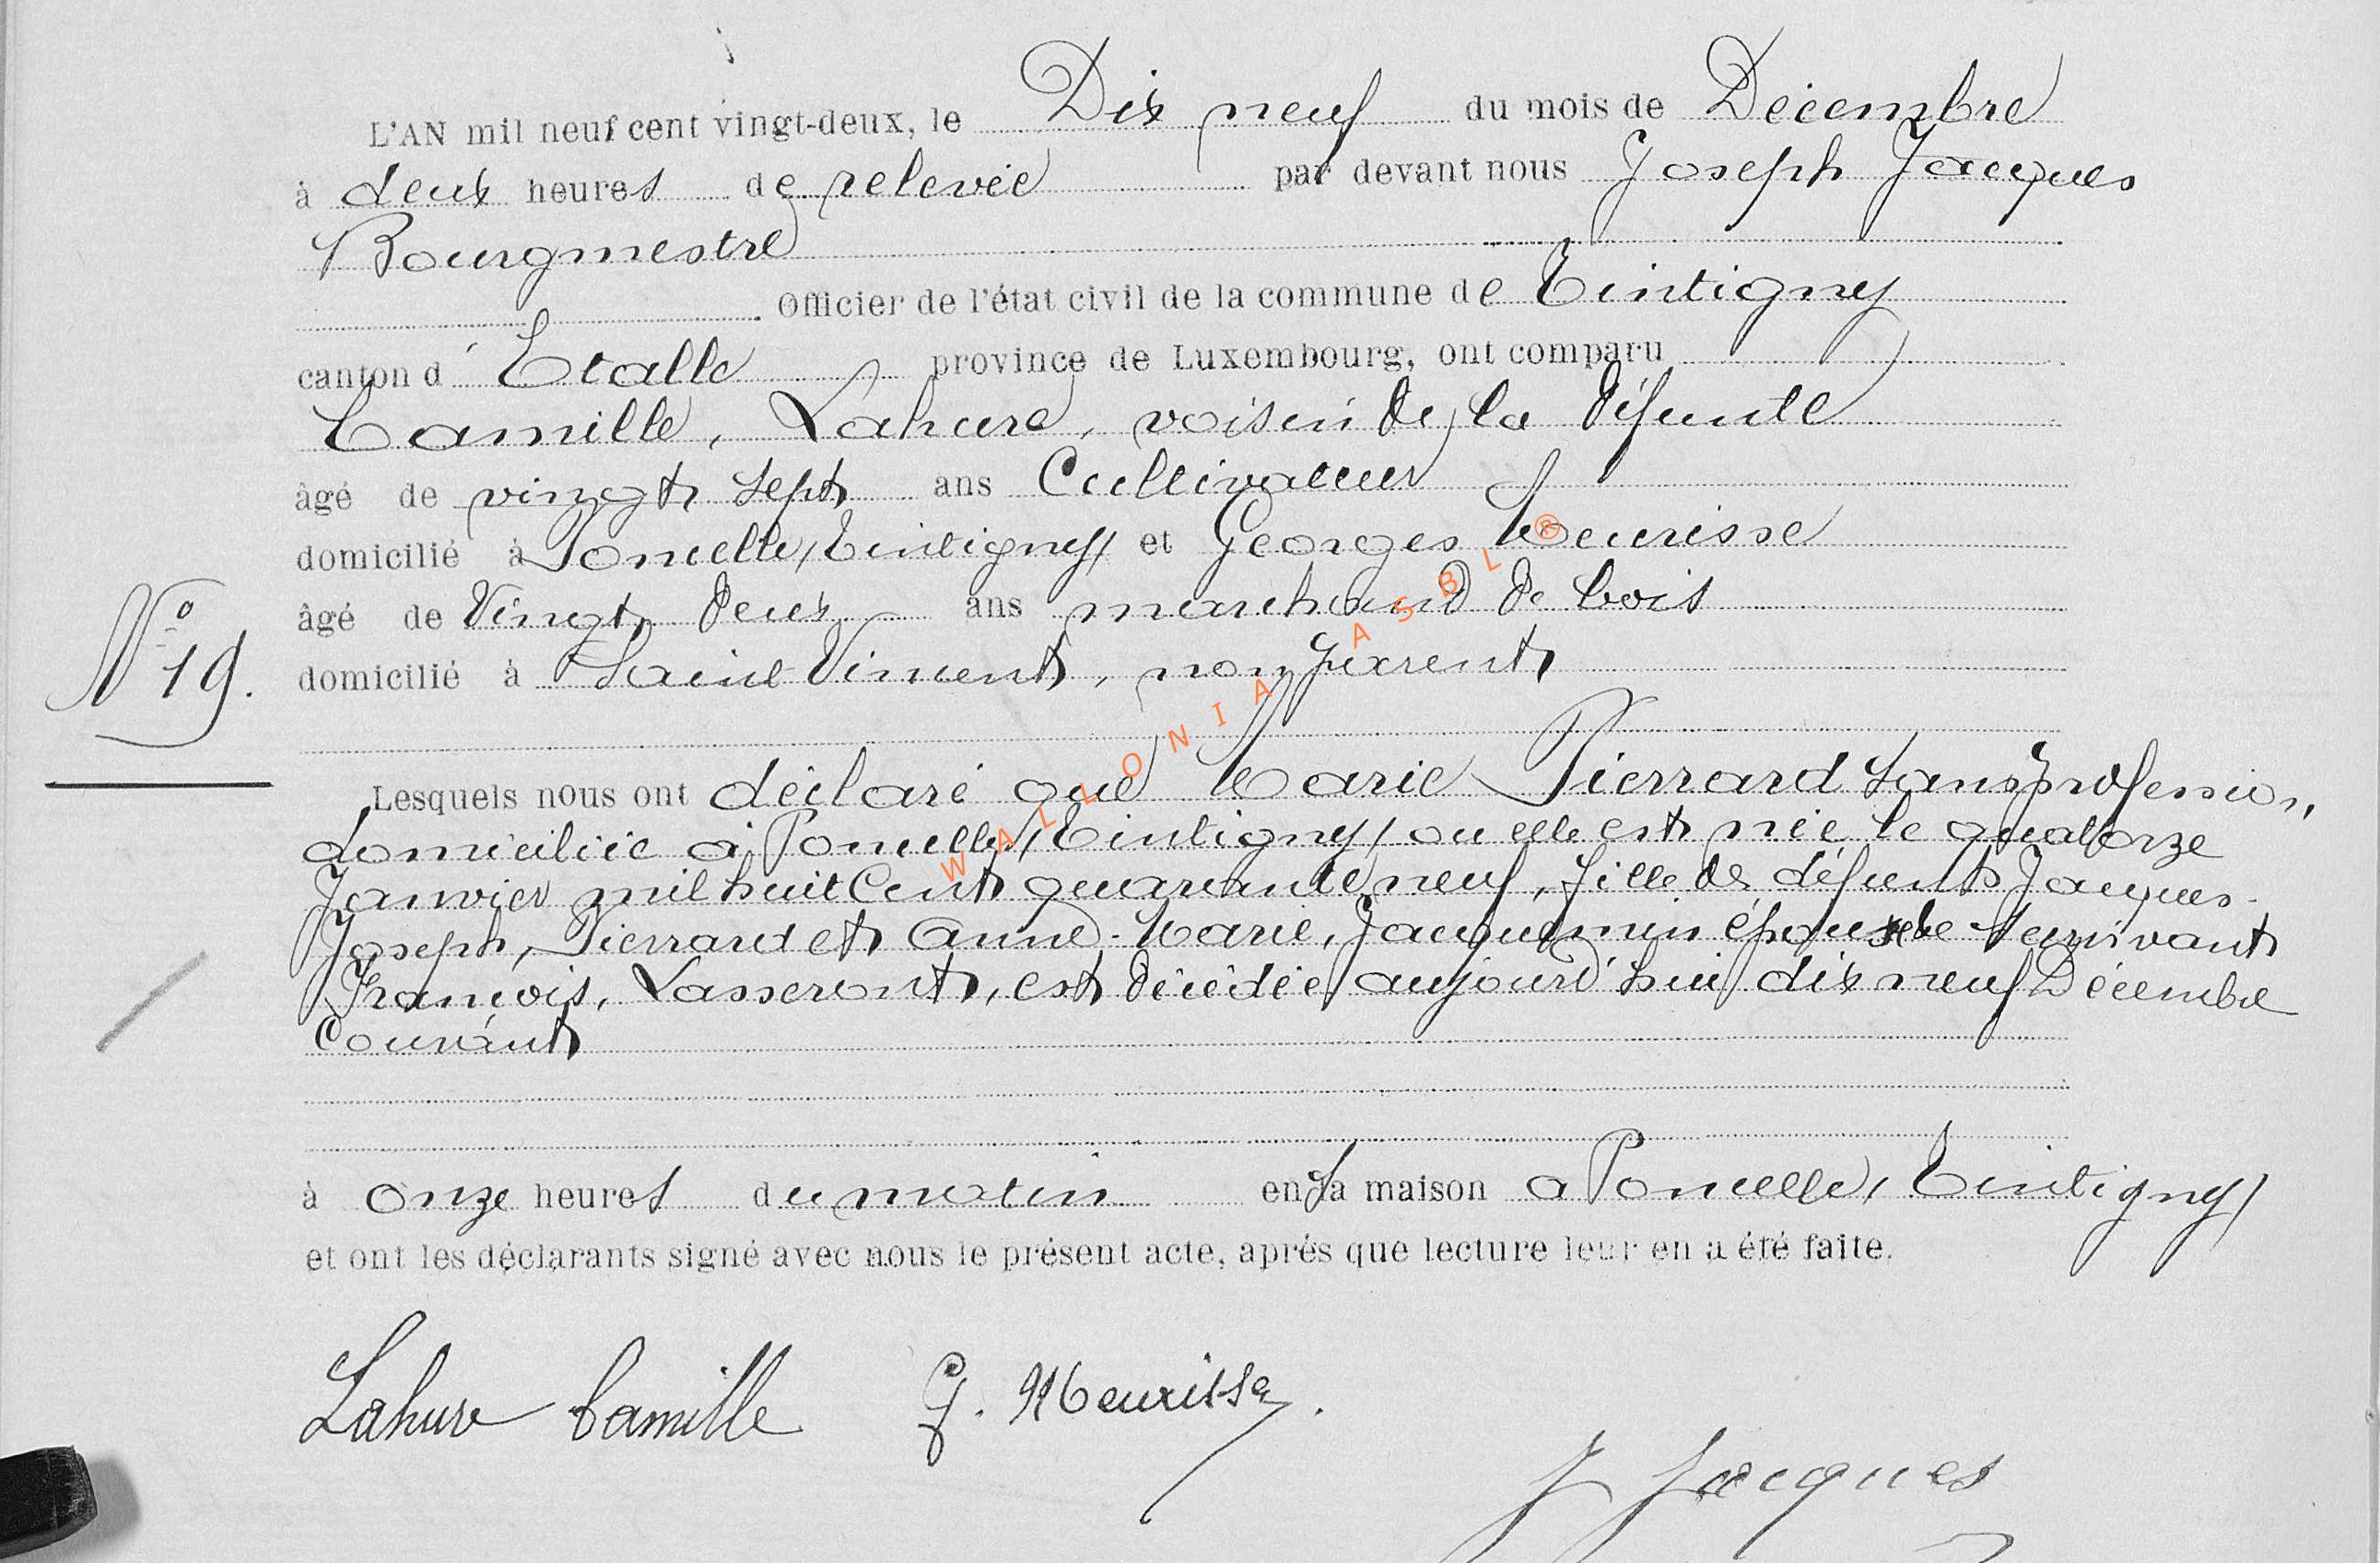 L'AN mil neuf cent vingt-deux, le Dix neuf du mois de Décembre
à deux heures de relevée par devant nous Joseph Jacques
Bourgmestre
Officier de l'état civil de la commune de Tintigny
canton d'Etalle province de Luxembourg, ont comparu
Camille, Lahure, voisin de la défunte
âgé de vingt sept ans Cultivateur
domicilié à Poncelle, (Tintigny) et Georges Meurisse
âgé de Vingt deux ans marchand de bois
domicilié à Saint Vincent, non parent
N° 19.
Lesquels nous ont déclaré que Marie Pierrard sans profession,
domiciliée à Poncelle (Tintigny) ou elle est née le quatorze
Janvier mil huit Cent quarante neuf, fille de défunts Jacques-
Joseph, Pierrard et Anne-Marie, Jacquemin épouse de survivant
François, Lasseront, est décédée aujourd'hui dix neuf Décembre
Courant
à onze heures du matin en sa maison a Poncelle, (Tintigny)
et ont les déclarants signé avec nous le présent acte, après que lecture leur en a été faite.
Lahure Camille G. Meurisse.
J Jacques
WALLONIA ASBL ®